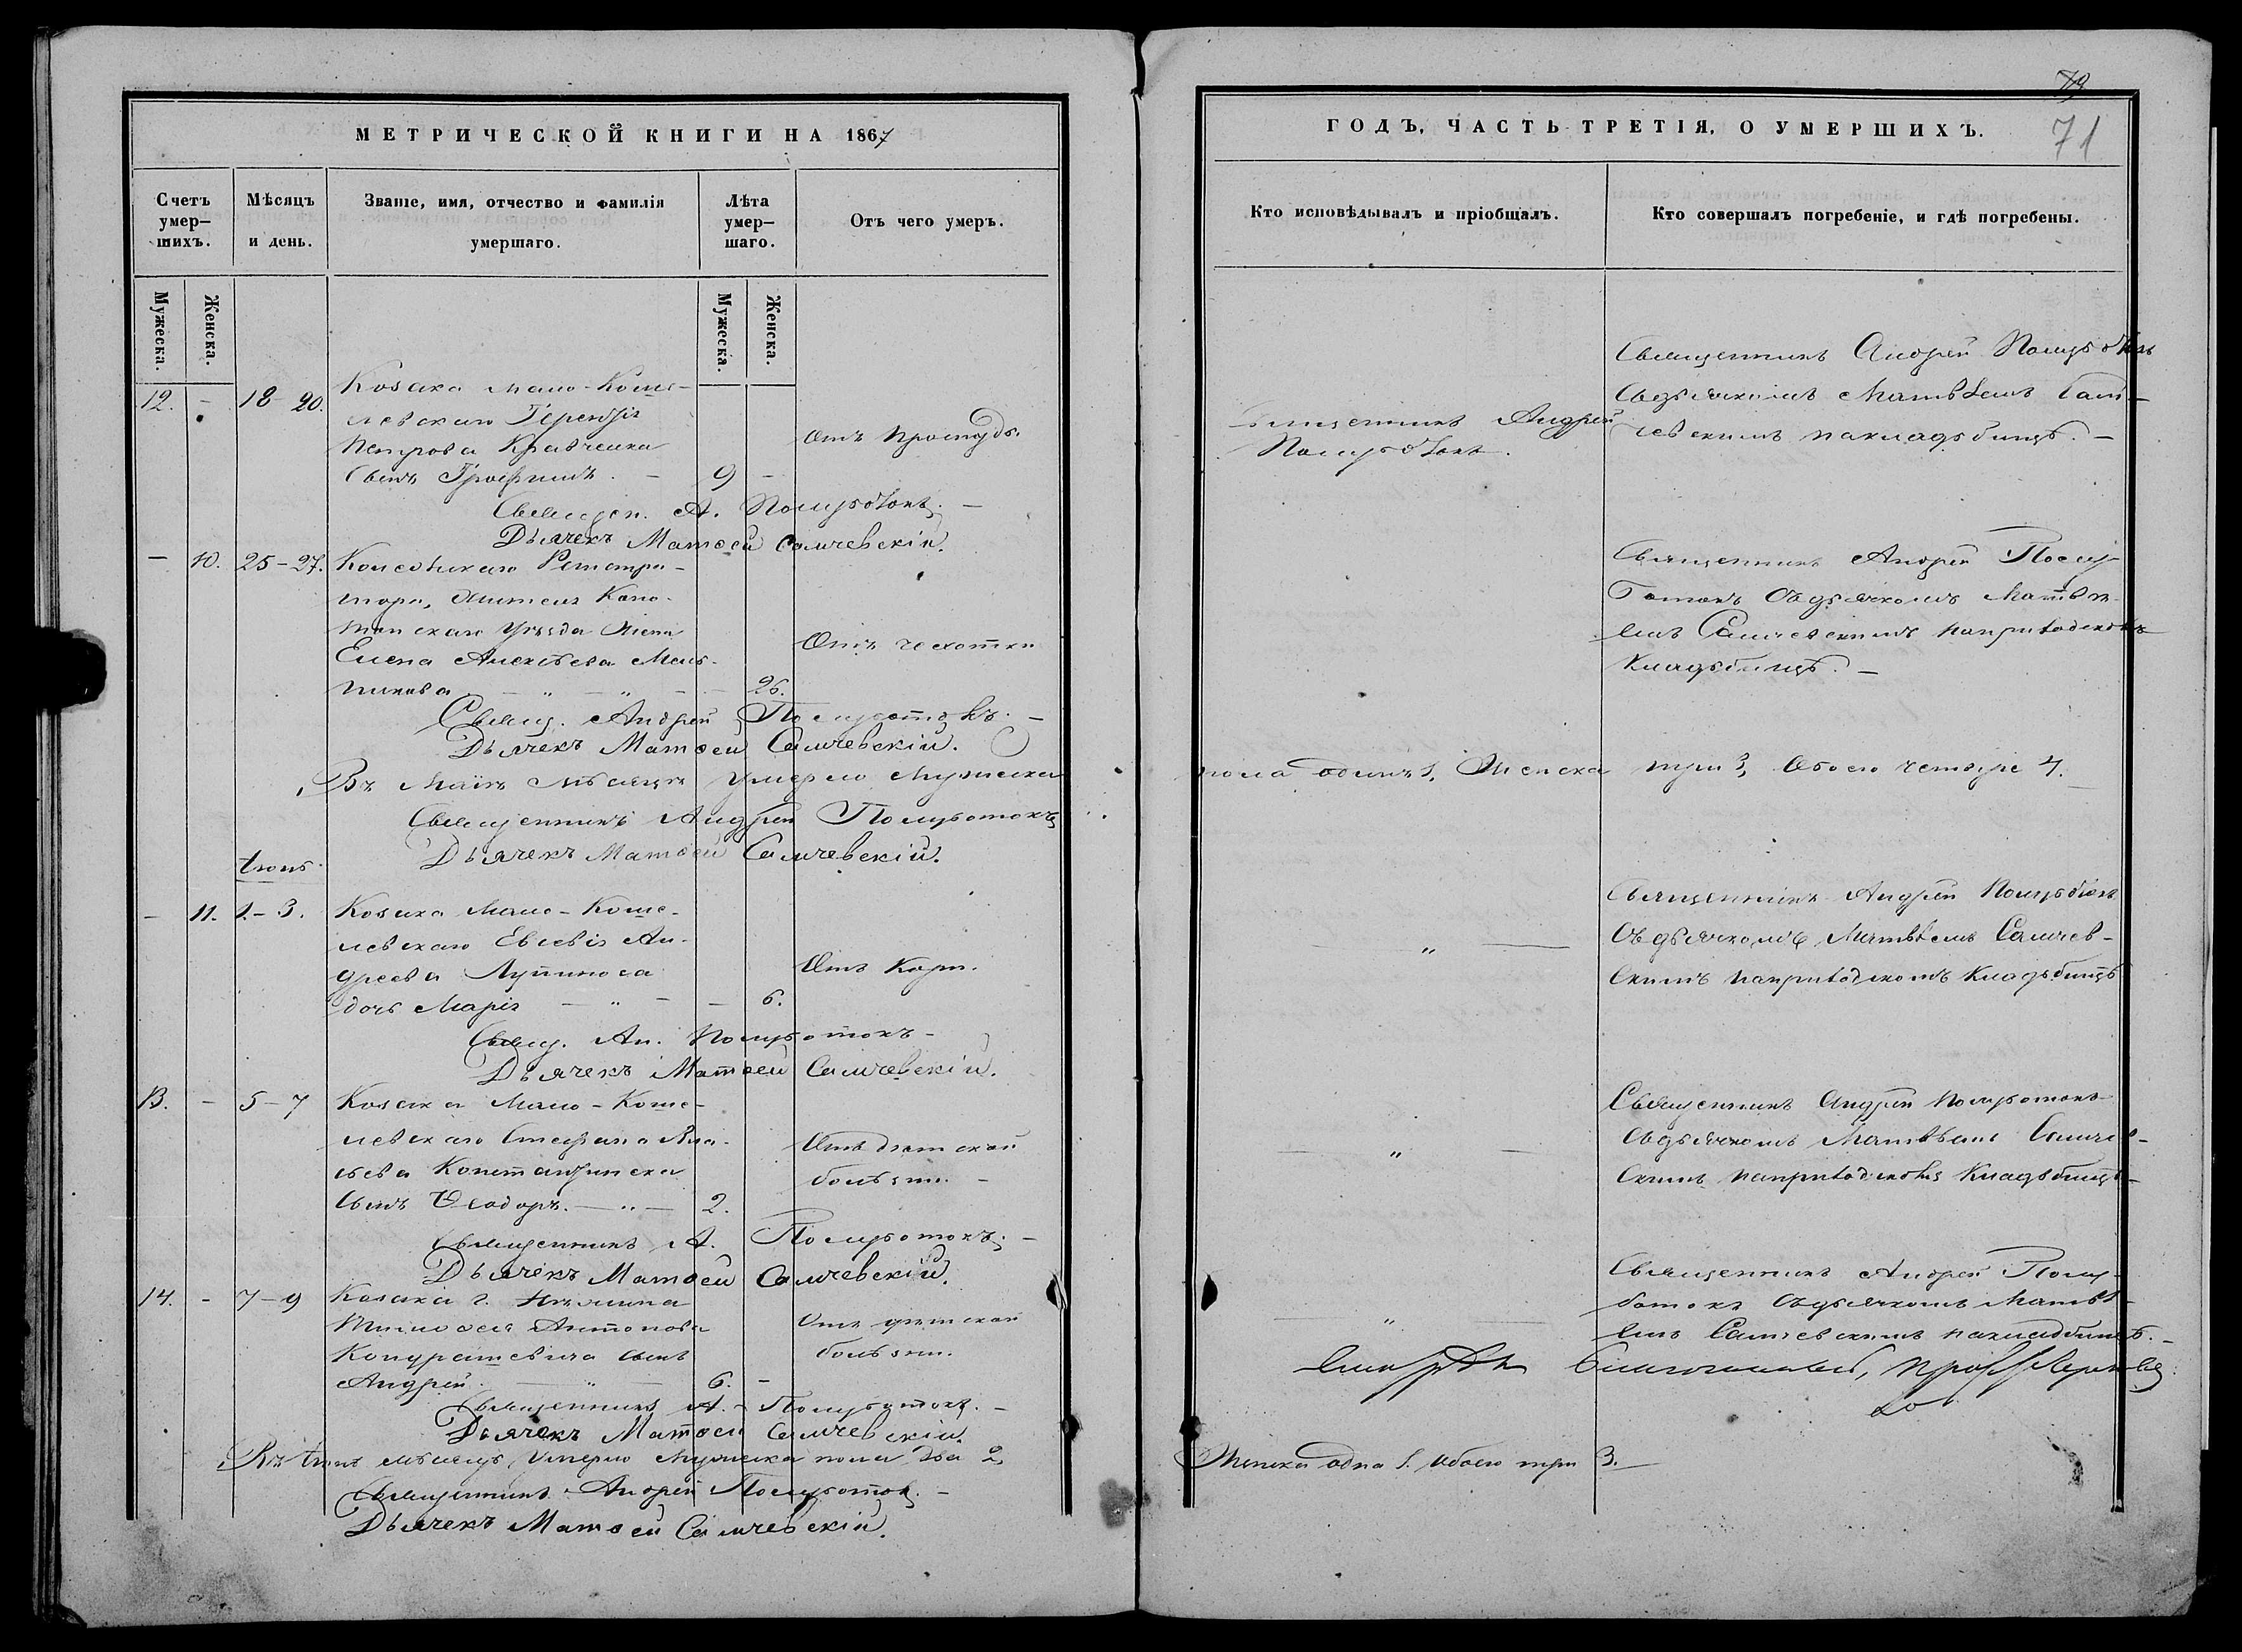 МЕТРИЧЕСКОЙ КНИГИ НА 1867
Счетъ умер-шихъ.
Мѣсяцъ и день.
Званіе, имя, отчество и фамилія умершаго.
Лѣта умер-шаго.
Отъ чего умеръ.
Мужеска.
Женска.
Мужеска.
Женска.
12. - 18-20. Козака Мало-Коше-
левскаго Терентія
Петрова Кравченка
сынъ Трофимъ. - 9 -
Отъ простуды.
Священ. А. Полуботокъ. -
Дьячекъ Матѳей Самчевскій.
- 10. 25-27.
жителя Коно-
топскаго уѣзда жена
Елена Алексѣева Мель-
никова - " - " - - 26.
Отъ чехотки
Свящ. Андрей Полуботокъ. -
Дьячекъ Матѳей Самчевскій.
Въ Маѣ мѣсяцѣ умерло мужеска
Священникъ Андрей Полуботокъ
Дьячекъ Матѳей Самчевскій.
Іюнь.
- 11. 1-3. Козака Мало-Коше-
левскаго Евсевія Ан-
дреева
дочь Марія - " - - 6.
Отъ Кори.
Свящ. Ан. Полуботокъ -
Дьячекъ Матѳей Самчевскій.
13. - 5-7 Козака Мало-Коше-
левскаго Стефана Вла-
сьева
сынъ Ѳеодоръ. - " - 2.
Отъ дѣтской
болѣзни. -
Священникъ А. Полуботокъ. -
Дьячекъ Матѳей Самчевскій.
14. - 7-9 Козака г. Нѣжина
Тимоѳея Антонова
Кондратевича сынъ
Андрей. - " - 6. -
Отъ дѣтской
болѣзни.
Священникъ А. Полуботокъ. -
Дьячекъ Матѳей Самчевскій.
Въ Іюнѣ мѣсяцѣ умерло мужеска пола два 2,
Священникъ Андрей Полуботок. -
Дьячекъ Матѳей Самчевскій.
79
71
ГОДЪ, ЧАСТЬ ТРЕТІЯ, О УМЕРШИХЪ.
Кто исповѣдывалъ и пріобщалъ.
Кто совершалъ погребеніе, и гдѣ погребены.
Священникъ Андрей
Полуботокъ.
Священникъ Андрей Полуботокъ
Съ дьячкомъ Матвѣемъ Сам-
чевскимъ на кладьбищѣ. -
Священникъ Андрей Полу-
ботокъ Съ дьячкомъ Матвѣ-
емъ Самчевскимъ на приходскомъ
Кладьбищѣ. -
пола одинъ 1, Женска три 3, Обоего четыре 4.
"
Священникъ Андрей Полуботокъ
Съ дьячкомъ Матвѣемъ Самчев-
скимъ на приходскомъ Кладьбищѣ
"
Священникъ Андрей Полуботокъ
Съ дьячкомъ Матвѣемъ Самчев-
скимъ на приходскомъ Кладьбищѣ -
"
Священникъ Андрей Полу-
ботокъ Съ дьячкомъ Матвѣ-
емъ Самчевскимъ на кладбищѣ. -
Женска одна 1. Обоего три 3.